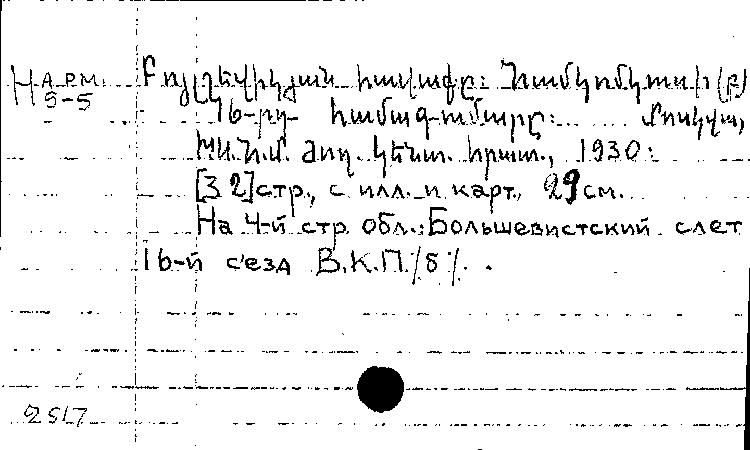 Н АРМ. 5-5
Բոլշևիկյան հավաքը: Համկոմկուսի (բ)
16-րդ համագումարը: Մոսկվա,
ԽՍՀՄ ժող. կենտ. հրատ., 1930:
[32]стр., с илл. и карт., 29см.
На 4-й стр обл.: Большевистский слет
16-й с'езд В.К.П./б/.
2517